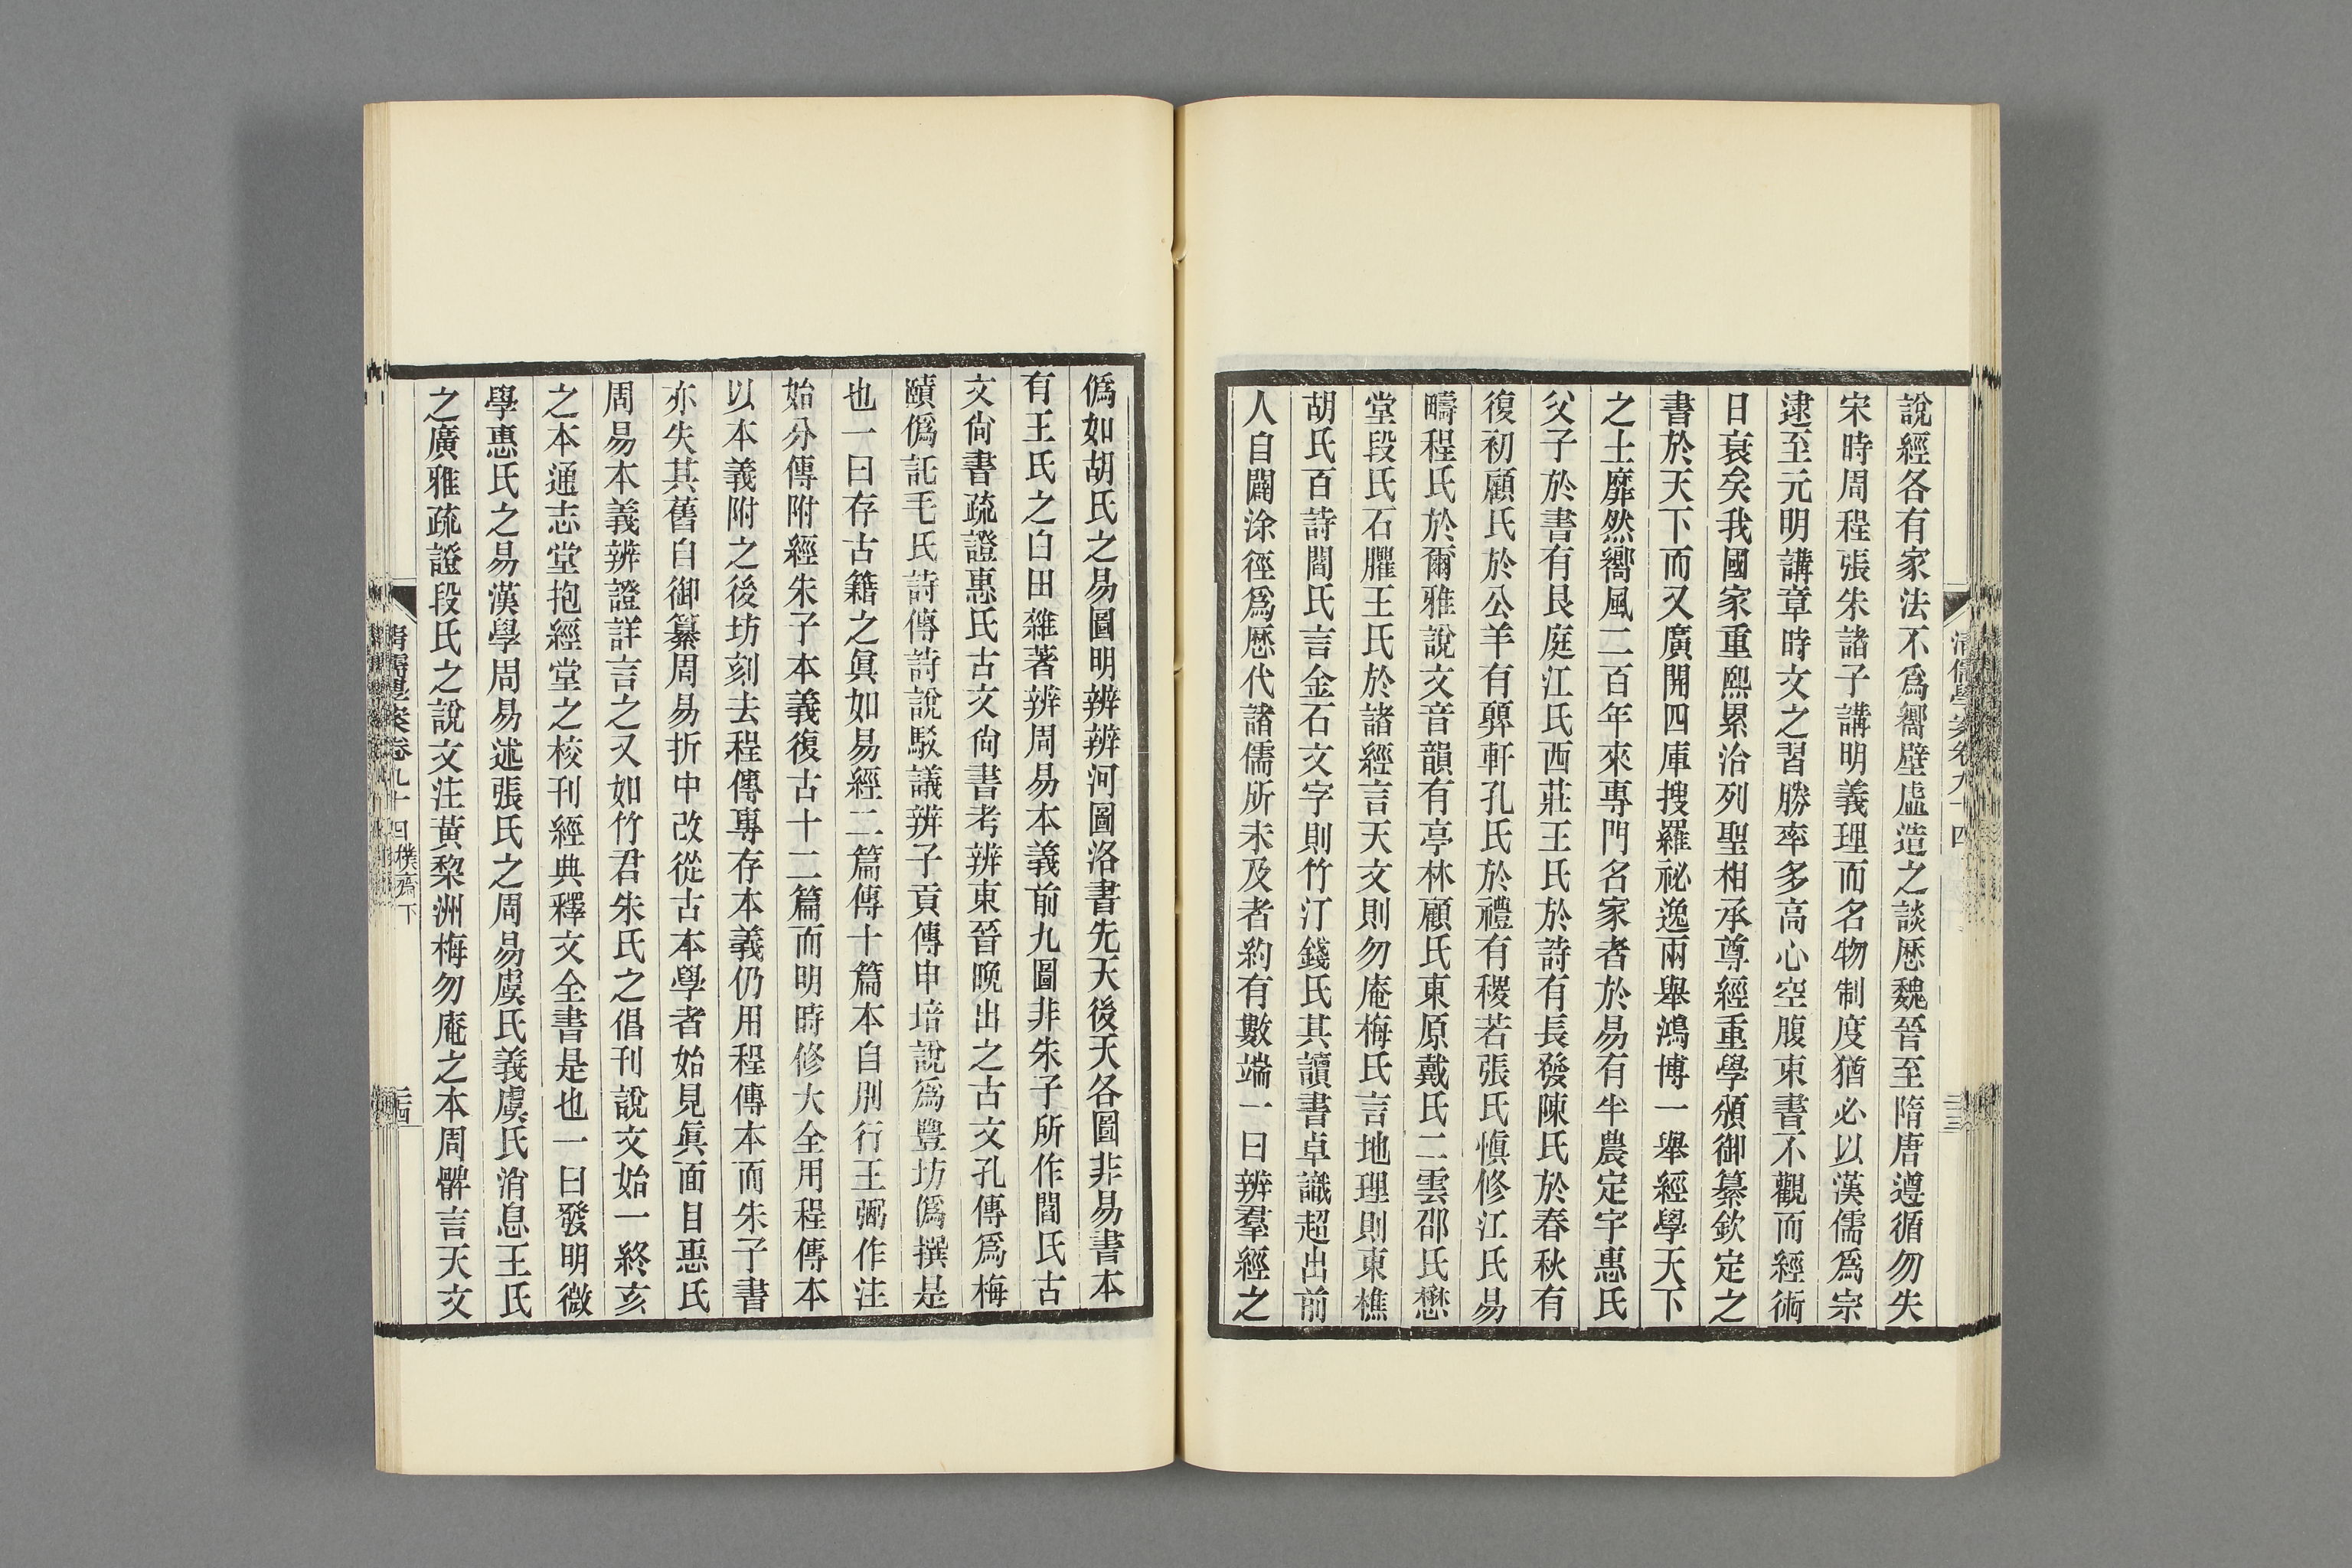 說經各有家法不爲嚮壁虛造之談歷魏晉至隋唐遵循勿失
宋時周程張朱諸子講明義理而名物制度猶必以漢儒爲宗
逮至元明講章時文之習勝率多高心空腹束書不觀而經術
日衰矣我國家重熙累洽列聖相承尊經重學頒御纂欽定之
書於天下而又廣開四庫搜羅祕逸兩舉鴻博一舉經學天下
之士靡然嚮風二百年來專門名家者於易有半農定宇惠氏
父子於書有艮庭江氏西莊王氏於詩有長發陳氏於春秋有
復初顧氏於公羊有顨軒孔氏於禮有稷若張氏愼修江氏易
疇程氏於爾雅說文音韻有亭林顧氏東原戴氏二雲邵氏懋
堂段氏石臞王氏於諸經言天文則勿庵梅氏言地理則東樵
胡氏百詩閻氏言金石文字則竹汀錢氏其讀書卓識超出前
人自闢涂徑爲歷代諸儒所未及者約有數端一曰辨羣經之
僞如胡氏之易圖明辨辨河圖洛書先天後天各圖非易書本
有王氏之白田雜著辨周易本義前九圖非朱子所作閻氏古
文尙書疏證惠氏古文尙書考辨東晉晚出之古文孔傳爲梅
賾僞託毛氏詩傳詩說駁議辨子貢傳申培說爲豐坊僞撰是
也一曰存古籍之眞如易經二篇傳十篇本自別行王弼作注
始分傳附經朱子本義復古十二篇而明時修大全用程傳本
以本義附之後坊刻去程傳專存本義仍用程傳本而朱子書
亦失其舊自御纂周易折中改從古本學者始見眞面目惠氏
周易本義辨證詳言之又如竹君朱氏之倡刊說文始一終亥
之本通志堂抱經堂之校刊經典釋文全書是也一曰發明微
學惠氏之易漢學周易述張氏之周易虞氏義虞氏消息王氏
之廣雅疏證段氏之說文注黃棃洲梅勿庵之本周髀言天文
清儒學案卷九十四 樸齋下